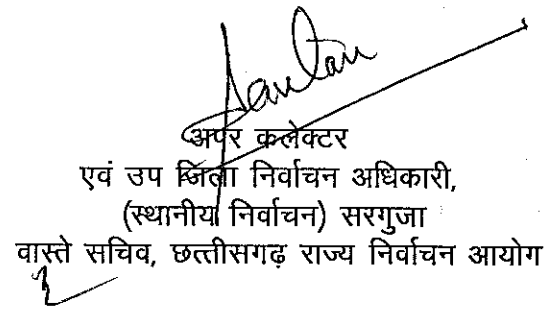 अपर कलेक्टर
एवं उप जिला निर्वाचन अधिकारी,
(स्थानीय निर्वाचन) सरगुजा
वास्ते सचिव, छत्तीसगढ़ राज्य निर्वाचन आयोग